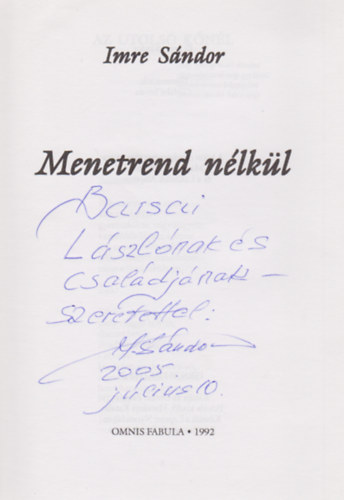 Imre Sándor
Menetrend nélkül
Barsai
Lászlónak és
családjának –
szeretettel:
Sándor
2005.
július 10.
OMNIS FABULA • 1992